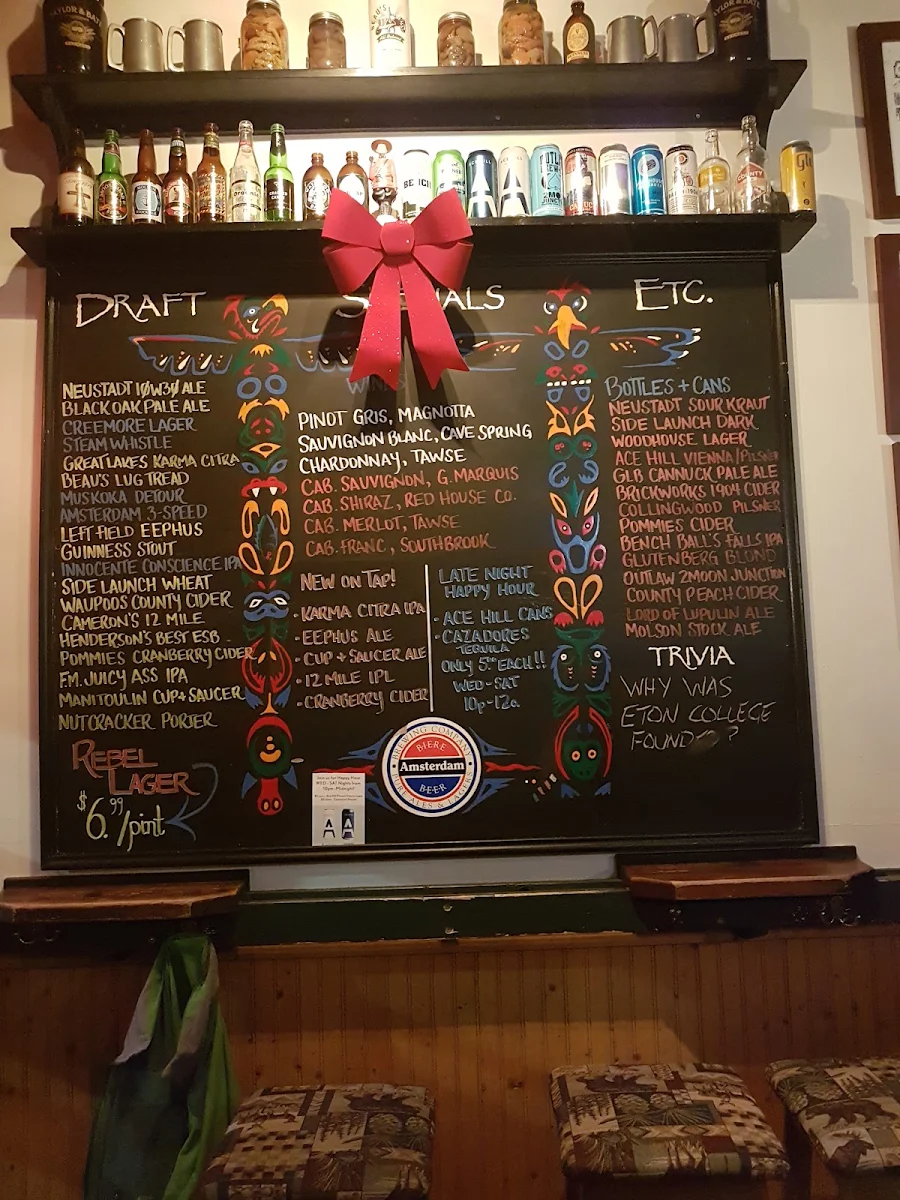 DRAFT
NEUSTADT 10W30 ALE
BLACK OAK PALE ALE
CREEMORE LAGER
STEAM WHISTLE
GREAT LAKES KARMA CITRA
BEAU'S LUG TREAD
MUSKOKA DETOUR
AMSTERDAM 3-SPEED
LEFT FIELD EEPHUS
GUINNESS STOUT
INNOCENTE CONSCIENCE IPA
SIDE LAUNCH WHEAT
WAUPOOS COUNTY CIDER
CAMERON'S 12 MILE
HENDERSON'S BEST ESB
POMMIES CRANBERRY CIDER
F.M. JUICY ASS IPA
MANITOULIN CUP + SAUCER
NUTCRACKER PORTER
REBEL
LAGER
$6.99/pint
WINES
PINOT GRIS, MAGNOTTA
SAUVIGNON BLANC, CAVE SPRING
CHARDONNAY, TAWSE
CAB. SAUVIGNON, G. MARQUIS
CAB. SHIRAZ, RED HOUSE CO.
CAB. MERLOT, TAWSE
CAB. FRANC, SOUTHBROOK
NEW ON TAP!
- KARMA CITRA IPA
- EEPHUS ALE
- CUP + SAUCER ALE
- 12 MILE IPL
- CRANBERRY CIDER
LATE NIGHT
HAPPY HOUR
- ACE HILL CANS
- CAZADORES
TEQUILA
ONLY 5.00 EACH!!
WED-SAT
10p-12a.
BREWING COMPANY
BIERE
Amsterdam
BEER
PURE ALES & LAGERS
ETC.
BOTTLES + CANS
NEUSTADT SOUR KRAUT
SIDE LAUNCH DARK
WOODHOUSE LAGER
ACE HILL VIENNA/PILSNER
GLB CANNUCK PALE ALE
BRICKWORKS 1904 CIDER
COLLINGWOOD PILSNER
POMMIES CIDER
BENCH BALL'S FALLS IPA
GLUTENBERG BLOND
OUTLAW 2MOON JUNCTION
COUNTY PEACH CIDER
LORD OF LUPULIN ALE
MOLSON STOCK ALE
TRIVIA
WHY WAS
ETON COLLEGE
FOUNDED?